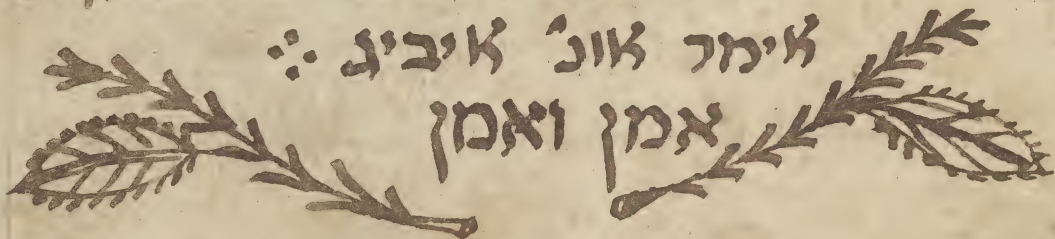 אימר אונ' איביג
אמן ואמן